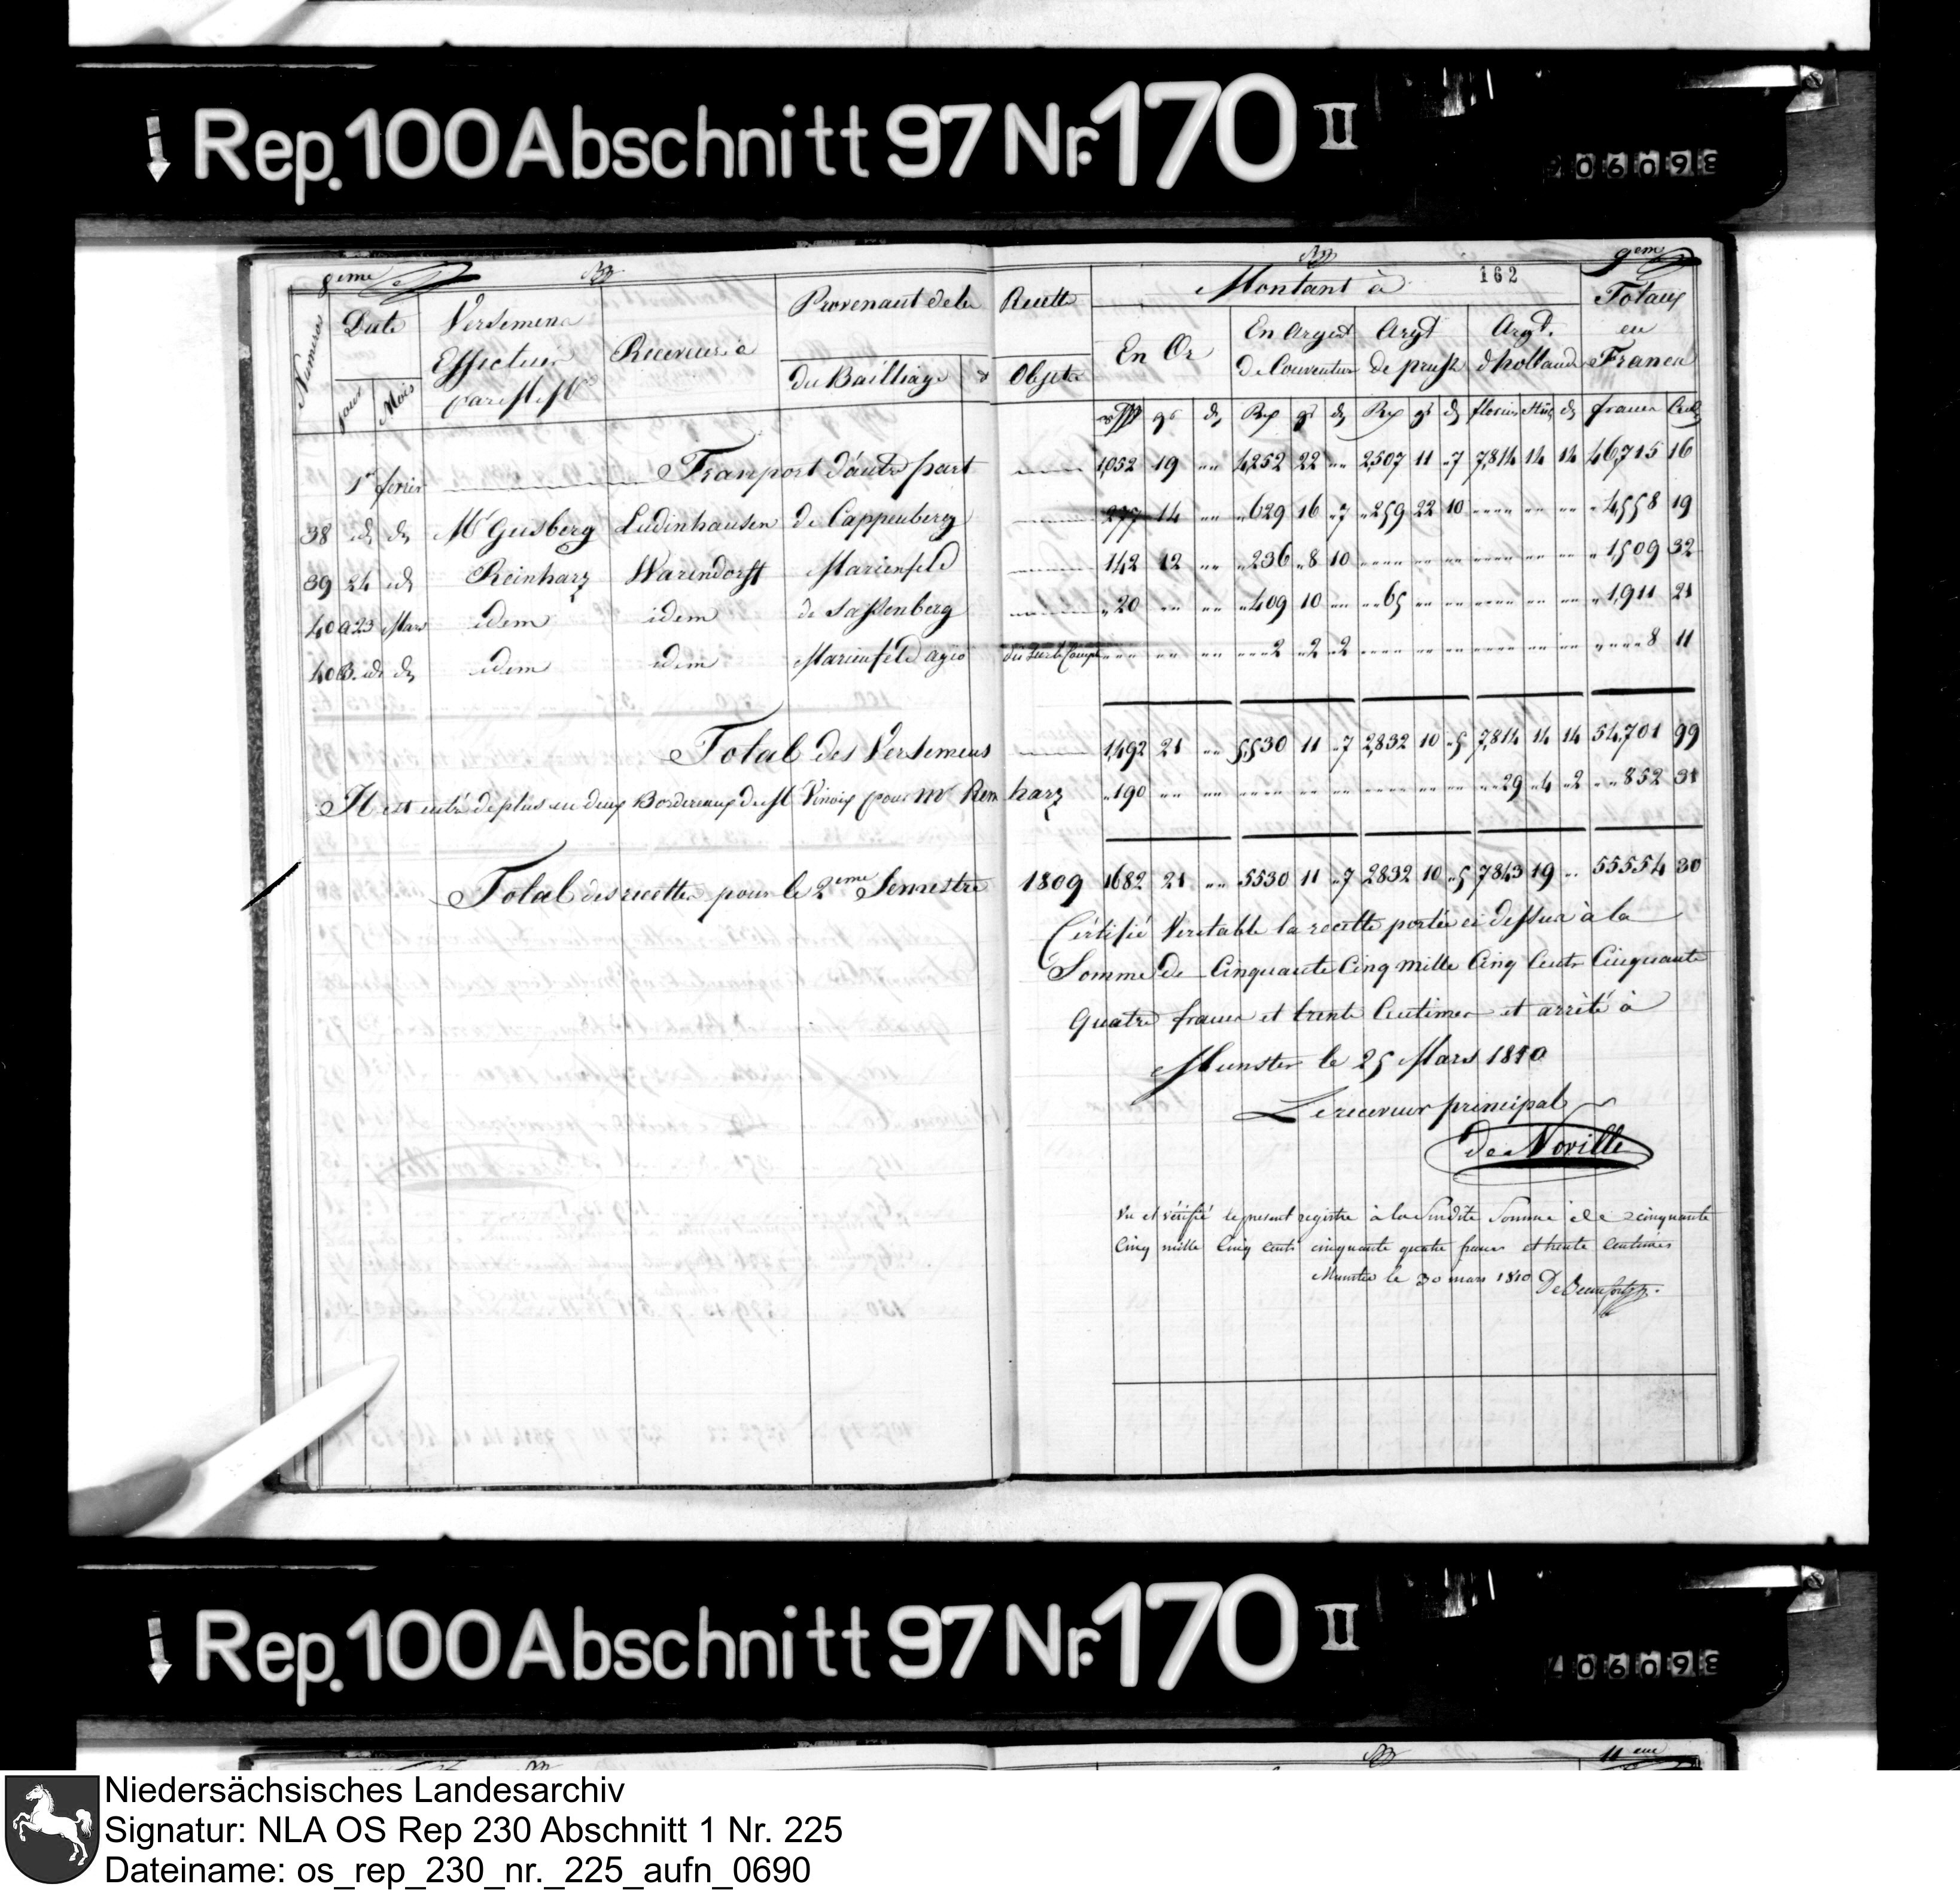 Rep. 100 Abschnitt 97 Nr. 170 II
06098
8eme
9eme
162
Numeros
Date
Versemens
Effectués
par M. Mrs
Receveur à
Provenant de la Recette
du Bailliage & Objets
Montant à
Totaux
en
Francs
jour Mois
En Or
En Argent
de Convention
Argt
de pruss
Argt.
d'hollande
gr d Rx gr d Rx gr d florins Stüb d francs Cent
1er fevrier Tranport d'autre part 1,052 19 " 4,252 22 " 2,507 11 7 7,814 14 14 46,715 16
38 id id Mr Geisberg Ludinhausen de Cappenberg 277 14 " 629 16 7 259 22 10 " " " 4,558 19
39 24 id Reinharz Warendorff Marienfeld 142 12 " 236 8 10 " " " " " " 1,509 32
40 a 23 Mars idem idem de Sassenberg 20 " " 409 10 " 65 " " " " " 1,911 21
40 B. id id idem idem Marienfeld agio du sur le Compt " " " 2 2 2 " " " " " " 8 11
Total des Versemens 1,492 21 " 5,530 11 7 2,832 10 5 7,814 14 14 54,701 99
Il est entré de plus en deux Bordereaux de M Vinoix pour Mr Reinharz 190 " " " " " " " " 29 4 2 852 31
Total des recettes pour le 2eme Semestre 1809 1682 21 " 5530 11 7 2832 10 5 7843 19 " 55554 30
Certifié Veritable la recette portée ci dessus à la
Somme de Cinquante Cinq mille Cinq Cents Cinquante
Quatre francs et trente Centimes et arrêté à
Munster le 25 Mars 1810
Le receveur principal
de Noville
Vu et vérifié le present registre à la susdite somme de cinquante
Cinq mille Cinq cents cinquante quatre francs et trente centimes
Munster le 30 mars 1810
Rep. 100 Abschnitt 97 Nr. 170 II
06098
11eme
Niedersächsisches Landesarchiv
Signatur: NLA OS Rep 230 Abschnitt 1 Nr. 225
Dateiname: os_rep_230_nr._225_aufn_0690